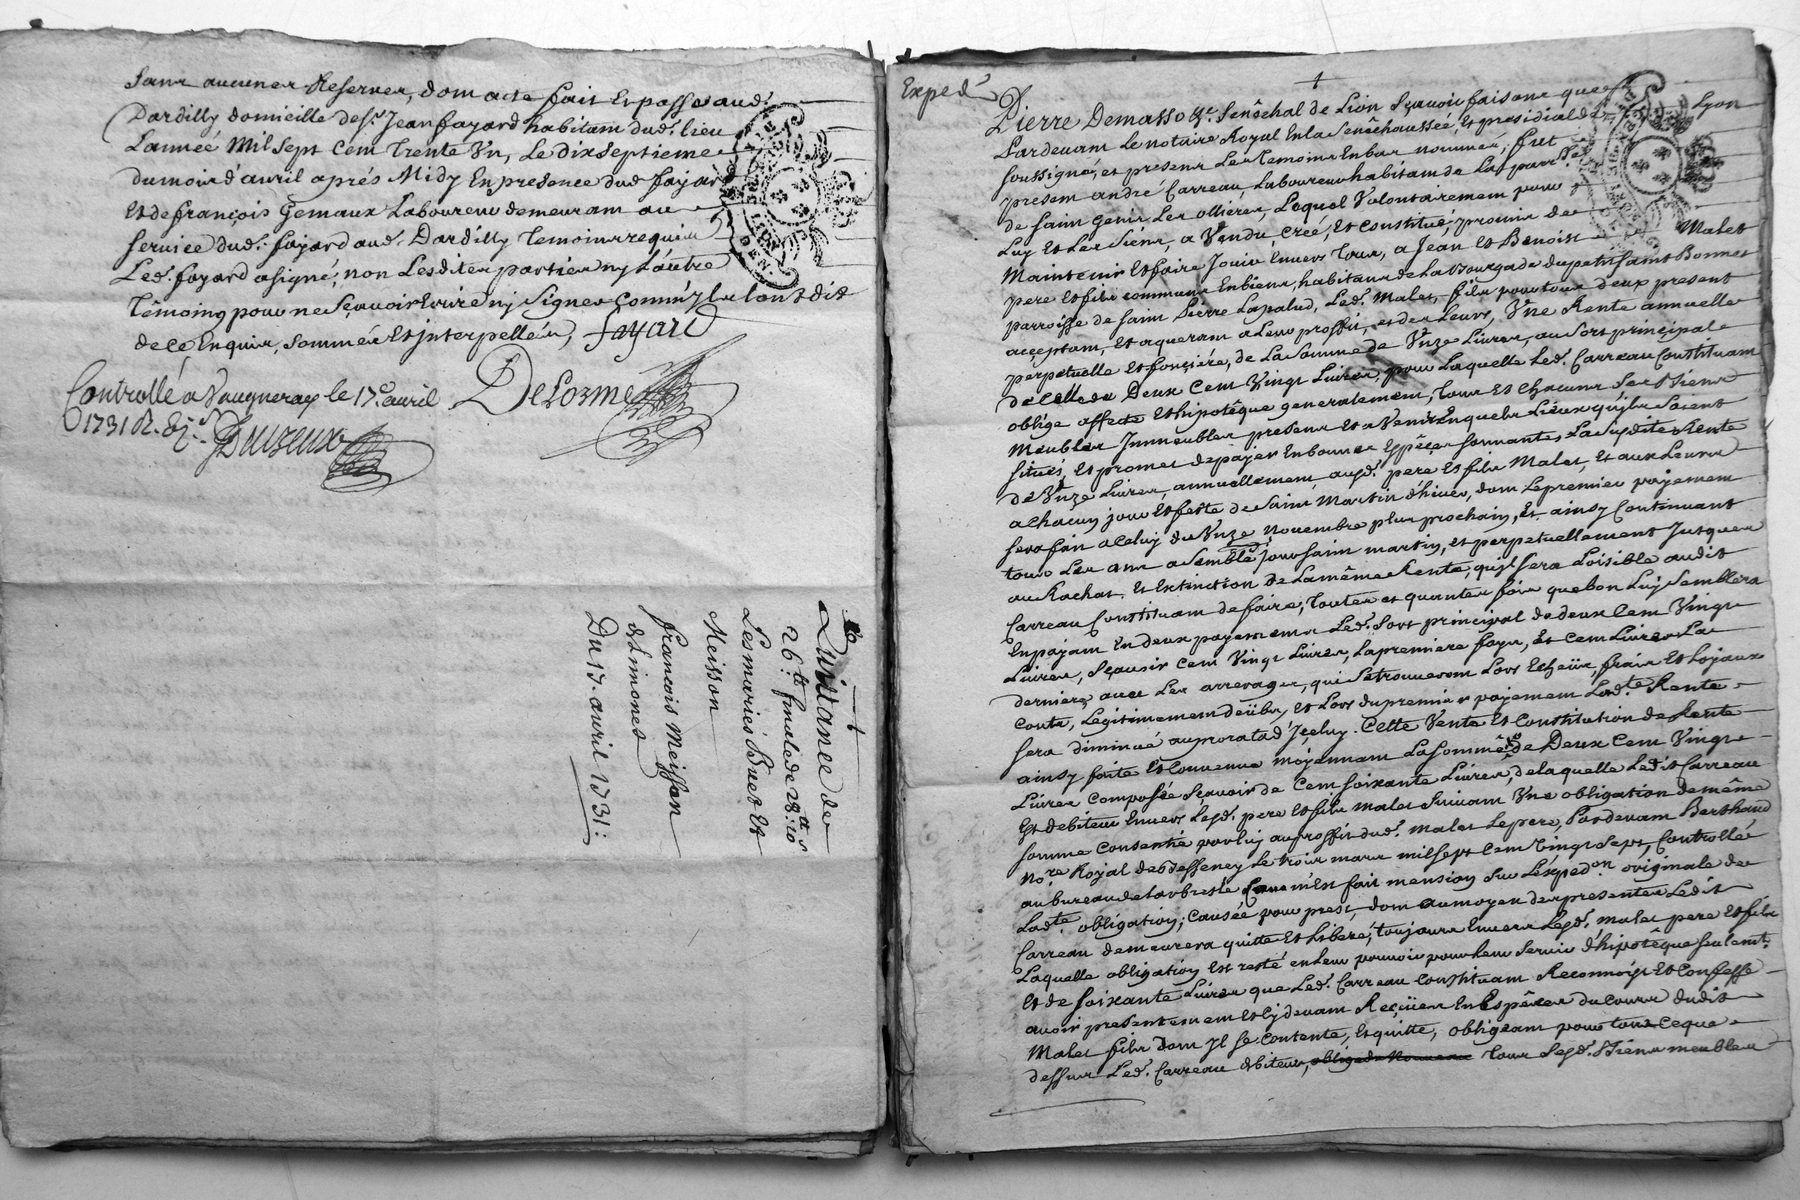 Sans aucunes Reserves, dont acte fait et passé aud.
Dardilly domicille de s.r Jean fayard habitant dud. lieu
L'année Mil sept Cent Trente Un, Le dixseptieme
du mois d'avril aprés Midy En presence dud. fayard
Et de françois Gemaux Laboureur demeurant au
service dud. fayard aud. Dardilly Temoins requis
Led. fayard a signé, non Lesdites parties ny L'autre
Témoing pour ne sçavoir Ecrire ny signer Comm'yls l'ont dit
de ce Enquis, sommés Et jnterpellés, fayard
Controllé a Vaugneray le 17.e avril
DeLorme
1731 R. Bureux
Quittance de
26.tt finale de 28.tt 10.s
Les mariés Buet Et
Meisson
François Meisson
de Limones
Du 17. avril 1731:
Exped.
Pierre Demasso &c. Senéchal de Lion sçavoir faisons que
Pardevant Le notaire Royal En la Senéchaussée, Et presidial de Lyon
soussigné, et presens Les temoins En bas nommés, fut
present andré Carreau, Laboureur habitant de La parr.sse
de saint Genis Les ollieres, Lequel Volontairement pour
Luy Et Les siens, a Vendu, Créé, Et Constitué, promis de
Maintenir Et faire Jouir Envers tous, a Jean Et Benoist Malet
pere Et fils communs En biens, habitans de La Bourgade du petit saint Bonnet
parroisse de saint Pierre Lapalud, Led. Malet, fils pour tous deux present
acceptant, Et aquerant a Leur proffit, et des Leurs, Une Rente annuelle
perpetuelle Et fonciére, de La somme de Unze Livres, au sort principal
de celle de Deux Cent Vingt Livres, pour Laquelle Led. Carreau Constituant
oblige affecte Et hipotêque generalement, tous Et Chacuns ses Biens
Meubles Jmmeubles presens Et a Venir En quels Lieux qu'yls soient
situés, Et promet de payer En bonnes Espéces sonnantes La susdite Rente
de Unze Livres, annuellement ausd. pere Et fils Malet, Et aux Leurs
a chacun jour Et feste de Saint Martin d'hiver, dont Le premier payement
sera fait a Celuy du Unze novembre plus prochain, Et ainsy Continuant
tous Les ans a semblé jour saint martin, Et perpetuellement Jusques
au Rachat, Et Extinction de La même Rente, qu'jl sera Loisible audit
Carreau Constituant de faire, toutes et quantes fois que bon Luy semblera
En payant En deux payemens Led. sort principal de deux Cent Vingt
Livres, sçavoir Cent Vingt Livres, La premiere fois, Et Cent Livres La
derniere avec Les arrerages, qui se trouveront Lors Echeüs, frais Et Lojaux
couts, Legitimement deübs, Et Lors du premier payement Lad.te Rente
sera diminüé au prorata d'Jceluy. Cette Vente Et Constitution de Rente
ainsy faite Et Convenue moyennant La somme de Deux Cent Vingt
Livres Composée sçavoir de Cent soixante Livres, de laquelle Ledit Carreau
Est debiteur Envers Lesd. pere Et fils Malet suivant Une obligation de même
somme Consentie par luy au proffit dud. Malet Le pere, Pardevant Berthaud
No.re Royal de Bessenay Le trois mars mil sept Cent Vingt Sept, Controllée
au bureau de Larbresle Comm'Est fait mension sur L'exped.on originale de
Lad.te obligation, Causée pour prest, dont au moyen des presentes Ledit
Carreau demeurera quitte Et Liberé, toujours Envers Lesd. Malet pere Et fils
Laquelle obligation Est resté en leur pouvoir pour leur servir d'hipotêque seulem.t
Et de soixante Livres que Led. Carreau Constituant Reconnoist Et Confesse
avoir presentement Et cy devant Reçües En Espéces du Cours dudit
Malet fils dont Jl se contente, Et quitte, obligeant pour tout ce que
dessus Led. Carreau debiteur, tous sesd. Biens meubles